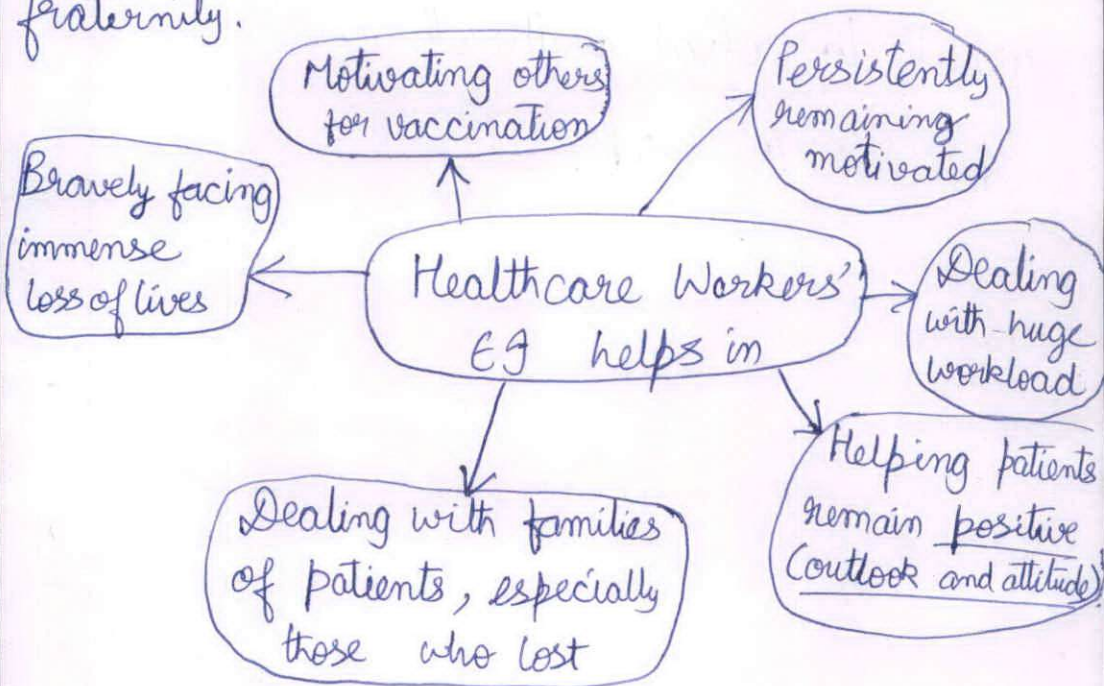 fraternity.
Motivating others
for vaccination
Persistently
remaining
motivated
Bravely facing
immense
loss of lives
Healthcare Workers'
EI helps in
Dealing
with huge
workload
Helping patients
remain positive
(outlook and attitude)
Dealing with families
of patients, especially
those who lost